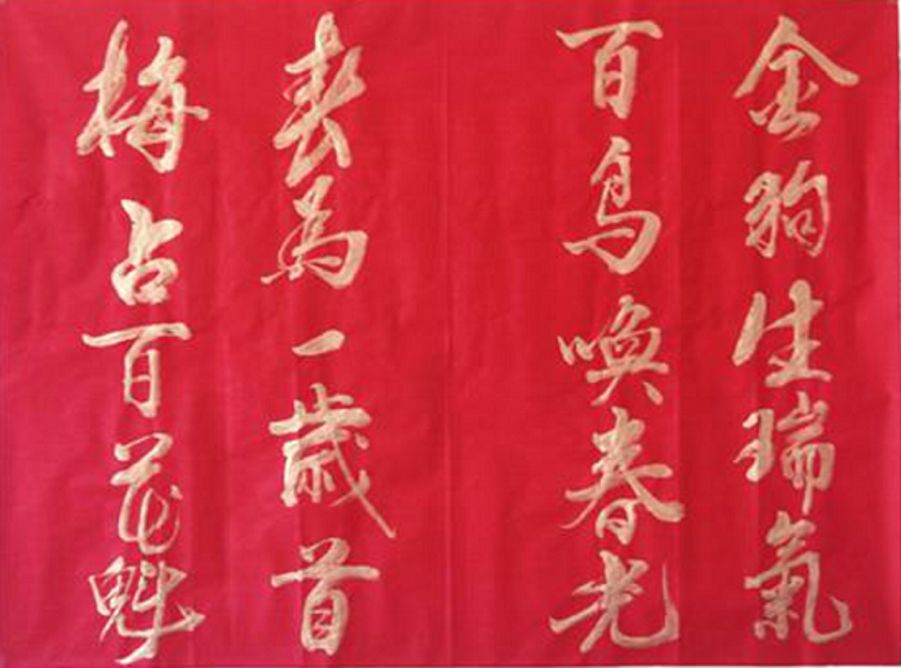 金狗生瑞氣
百鳥喚春光
春為一歲首
梅占百花魁